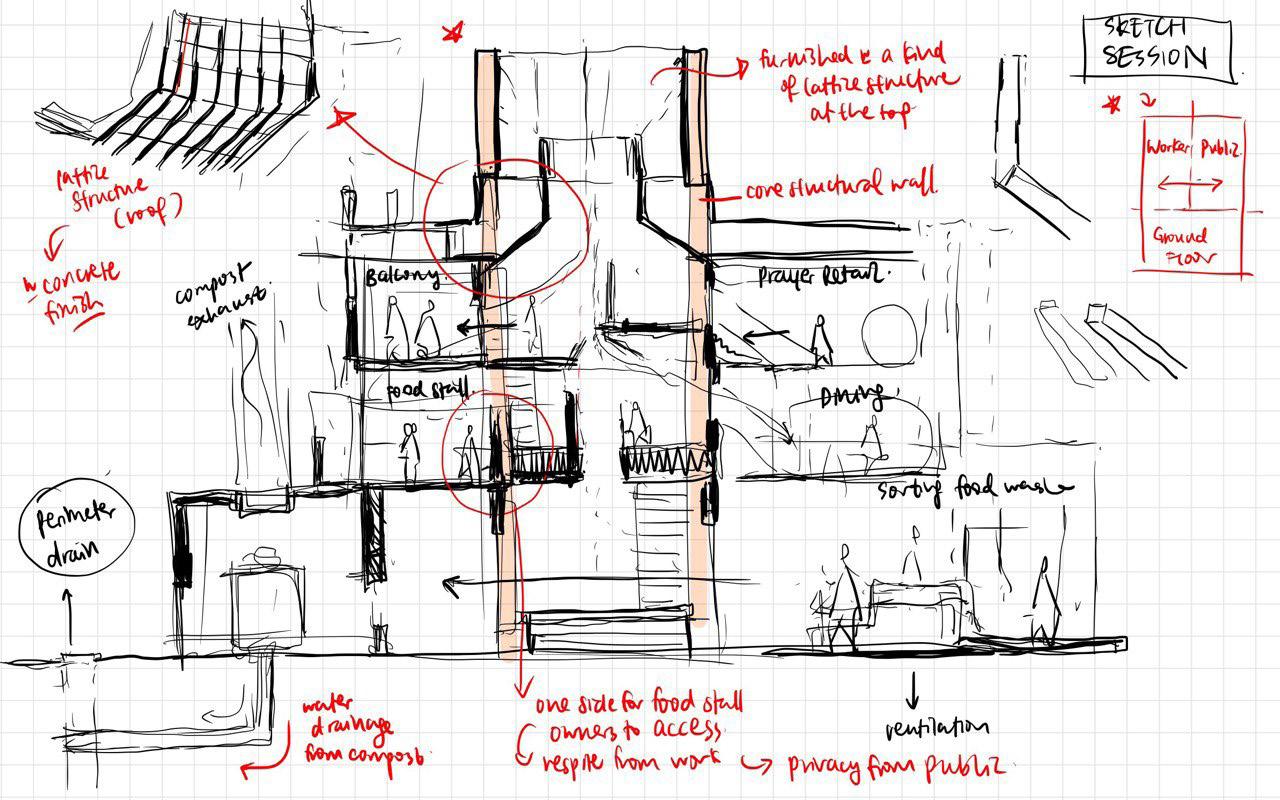 SKETCH
SESSION
furnished is a kind
of lattize structure
at the top
core structural wall.
Worker Public
Ground
Floor
lattize
structure
(roof)
w concrete
finish
compost
exhaust.
Balcony.
Prayer Retail.
food stall.
Dining.
Sorting food waste
Perimeter
drain
water
drainage
from compost.
one side for food stall
owners to access
respite from work
privacy from public
ventilation